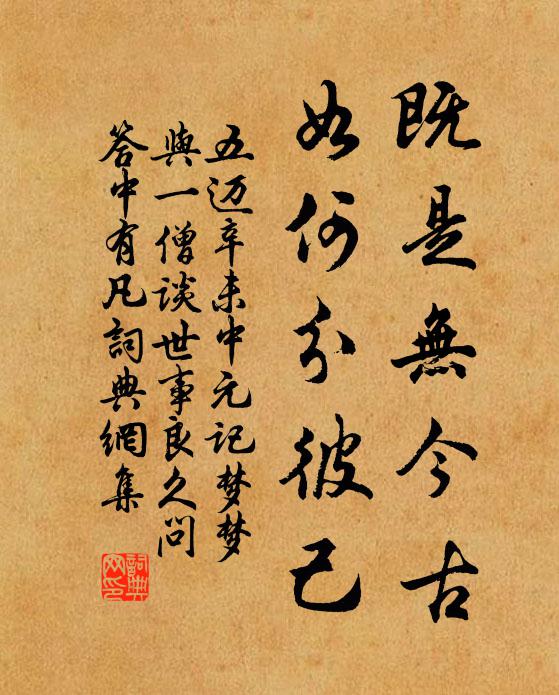 既是無今古
如何分彼己
五迈辛未中元记梦梦
與一僧談世事良久问
答中有凡詞典網集
詞典网印